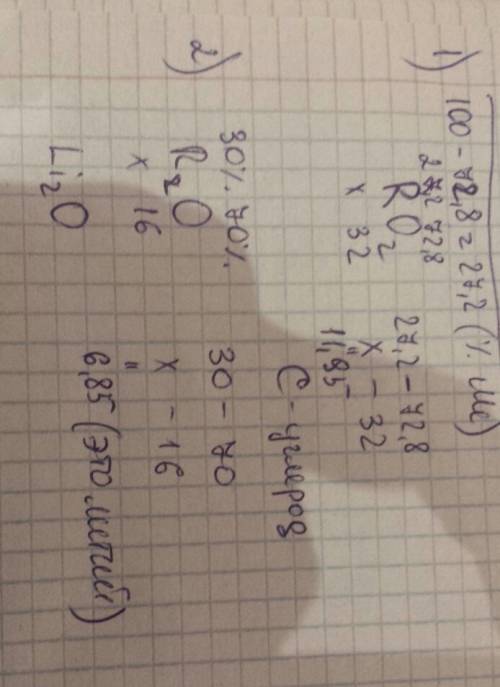 1) 100 - 72,8 = 27,2 (% Me)
27,2 72,8
RO₂
x 32
27,2 - 72,8
x - 32
"
11,95
C - углерод
2) 30% 70%
R₂O
x 16
30 - 70
x - 16
"
6,85 (это литий)
Li₂O